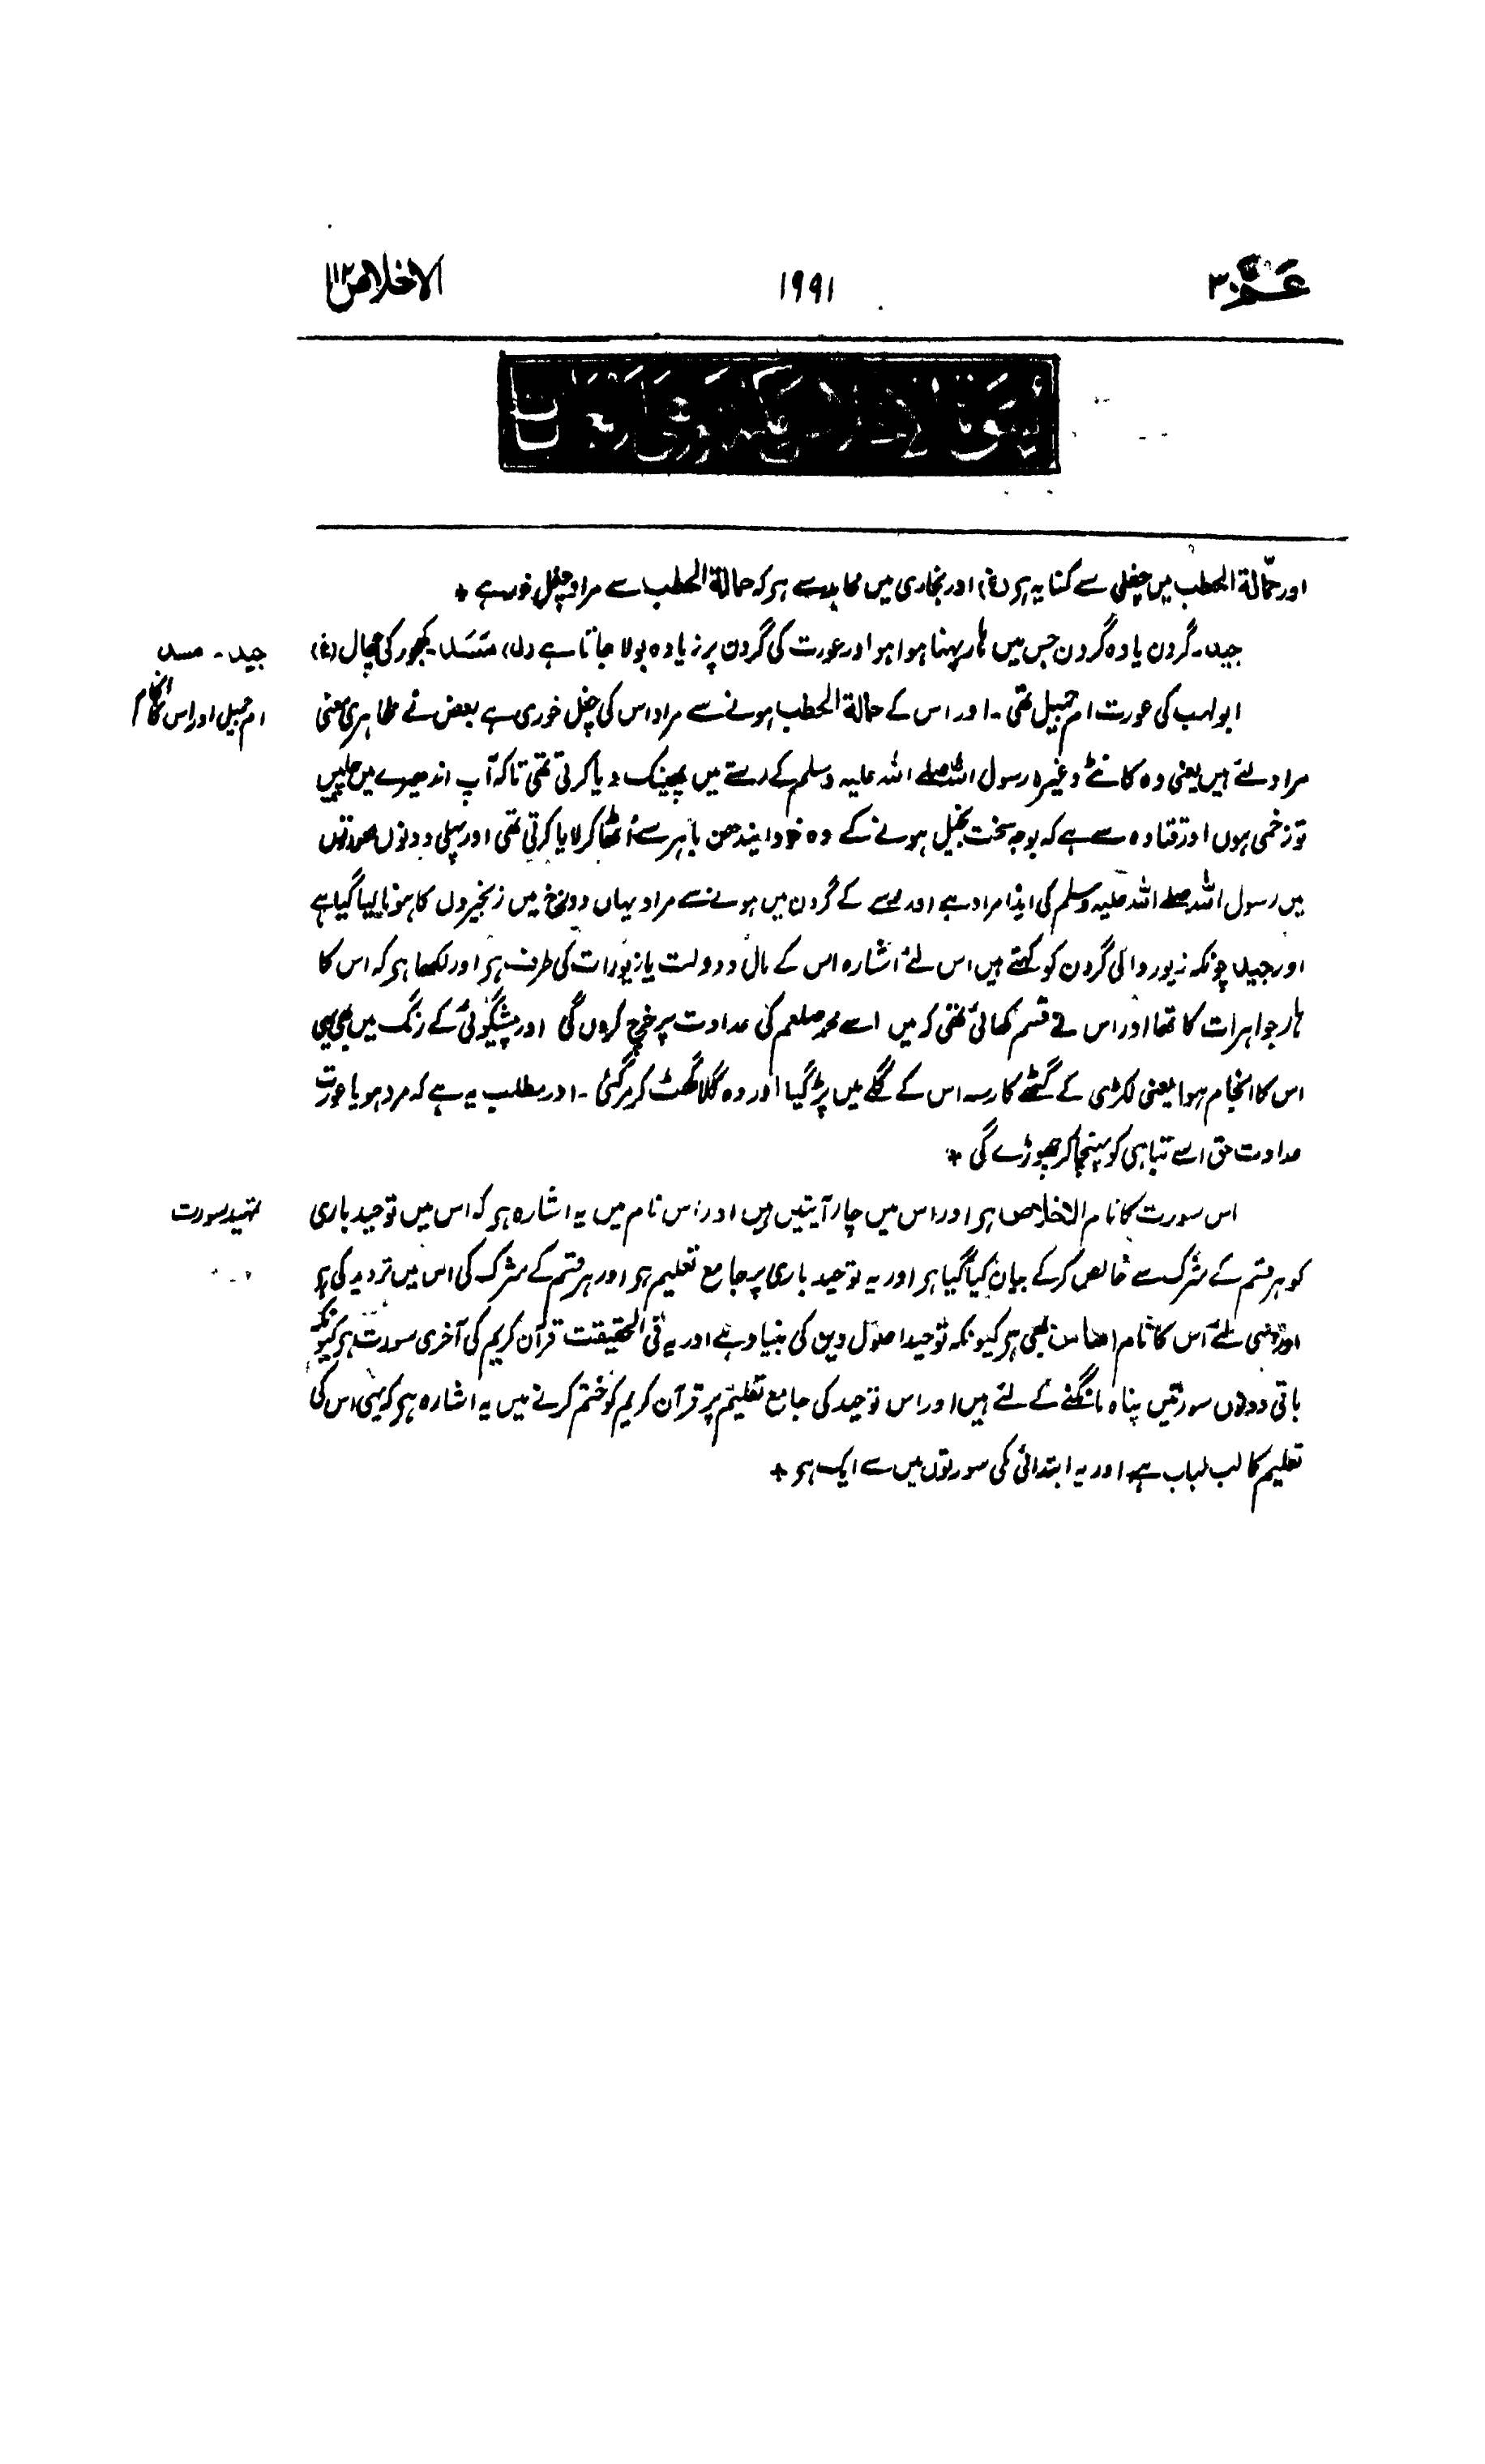 عمّ ۳۰
۱۹۹۱
الاخلاص ۱۱۲
سورة الاخلاص مکیة وهی اربع اٰیات
اور حمّالة الحطب میں چغلی سے کنایہ ہر (غ) اور بخاری میں مجاہد سے ہر کہ حمالة الحطب سے مراد چغل خور ہے +
جید۔ گردن یا وہ گردن جس میں ہار پہنا ہوا ہو اور عورت کی گردن پر زیادہ بولا جاتا ہے (ل) مَسَد۔ کھجور کی چھال (غ)
جید۔ مسد
ابولہب کی عورت ام جمیل تھی۔ اور اس کے حمالة الحطب ہونے سے مراد اس کی چغل خوری ہے بعض نے ظاہری معنی
ام جمیل اور اس کا انجام
مراد لئے ہیں یعنی وہ کانٹے وغیرہ رسول اللہ صلے اللہ علیہ وسلم کے رستے میں پھینک دیا کرتی تھی تاکہ آپ اندھیرے میں چلیں
تو زخمی ہوں اور قتادہ سے ہے کہ بوجہ سخت بخیل ہونے کے وہ خود ایندھن باہر سے اُٹھا کر لایا کرتی تھی اور پہلی دونوں صورتوں
میں رسول اللہ صلے اللہ علیہ وسلم کی ایذا مراد ہے اور رسے کے گردن میں ہونے سے مراد یہاں دوزخ میں زنجیروں کا ہونا لیا گیا ہے
اور جید چونکہ زیور والی گردن کو کہتے ہیں اس لئے اشارہ اس کے مال و دولت یا زیورات کی طرف ہر اور لکھا ہر کہ اس کا
ہار جواہرات کا تھا اور اس نے قسم کھائی تھی کہ میں اسے محمد صلعم کی عداوت پر خرچ کروں گی اور پیشگوئی کے رنگ میں بھی یہی
اس کا انجام ہوا یعنی لکڑی کے گٹھے کا رسہ اس کے گلے میں پڑ گیا اور وہ گلا گھٹ کر مر گئی۔ اور مطلب یہ ہے کہ مرد ہو یا عورت
عداوت حق اسے تباہی کو پہنچا کر چھوڑے گی +
اس سورت کا نام الاخلاص ہر اور اس میں چار آیتیں ہیں اور اس نام میں یہ اشارہ ہر کہ اس میں توحید باری
تمہید سورت
کو ہر قسم کے شرک سے خالص کر کے بیان کیا گیا ہر اور یہ توحید باری پر جامع تعلیم ہر اور ہر قسم کے شرک کی اس میں تردید کی ہر
اور اسی لئے اس کا نام اساس بھی ہر کیونکہ توحید اصول دین کی بنیاد ہے اور یہ فی الحقیقت قرآن کریم کی آخری سورت ہر کیونکہ
باقی دونوں سورتیں پناہ مانگنے کے لئے ہیں اور اس توحید کی جامع تعلیم پر قرآن کریم کو ختم کرنے میں یہ اشارہ ہر کہ یہی اس کی
تعلیم کا لب لباب ہے اور یہ ابتدائی مکی سورتوں میں سے ایک ہر +